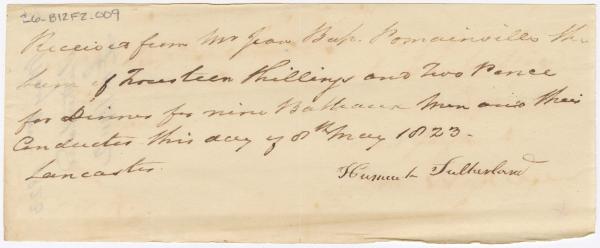 16-B12F2-009
Received from Mr Jean Bap. Pomainville the
Sum of Fourteen Shillings and Two Pence
for Dinner for nine Batteaux Men and their
Conductor this day of 8th May 1823-
Lancaster.
Sutherland